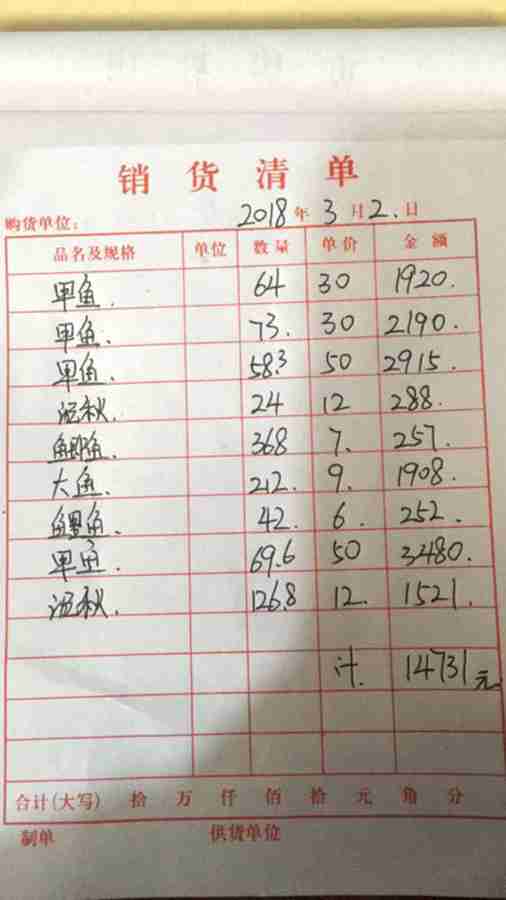 销货清单
购货单位: 2018年3月2.日
品名及规格 单位 数量 单价 金额
甲鱼. 64 30 1920.
甲鱼. 73. 30 2190.
甲鱼. 58.3 50 2915.
泥秋. 24 12 288.
鲫鱼. 368 7. 257.
大鱼. 212. 9. 1908.
鳇鱼. 42. 6. 252.
甲鱼. 69.6 50 3480.
泥秋. 126.8 12. 1521.
计. 14731元
合计(大写) 拾 万 仟 佰 拾 元 角 分
制单 供货单位